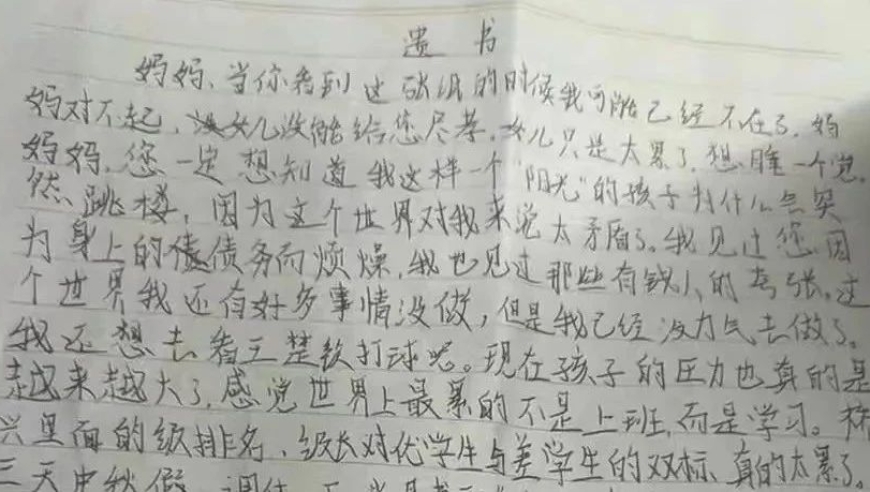 遗 书
妈妈、当你看到这张纸的时候我可能已经不在了。妈
妈对不起,女儿没能给您尽孝。女儿只是太累了,想睡一个觉。
妈妈,您一定想知道我这样一个"阳光"的孩子为什么会突
然跳楼,因为这个世界对我来说太矛盾了。我见过您因
为身上的债务而烦燥,我也见过那些有钱人的夸张。这
个世界我还有好多事情没做,但是我已经没力气去做了。
我还想去看王楚钦打球呢。现在孩子的压力也真的是
越来越大了,感觉世界上最累的不是上班,而是学习。
兴里面的级排名、级长对优学生与差学生的双标、真的太累了。
三天中秋假